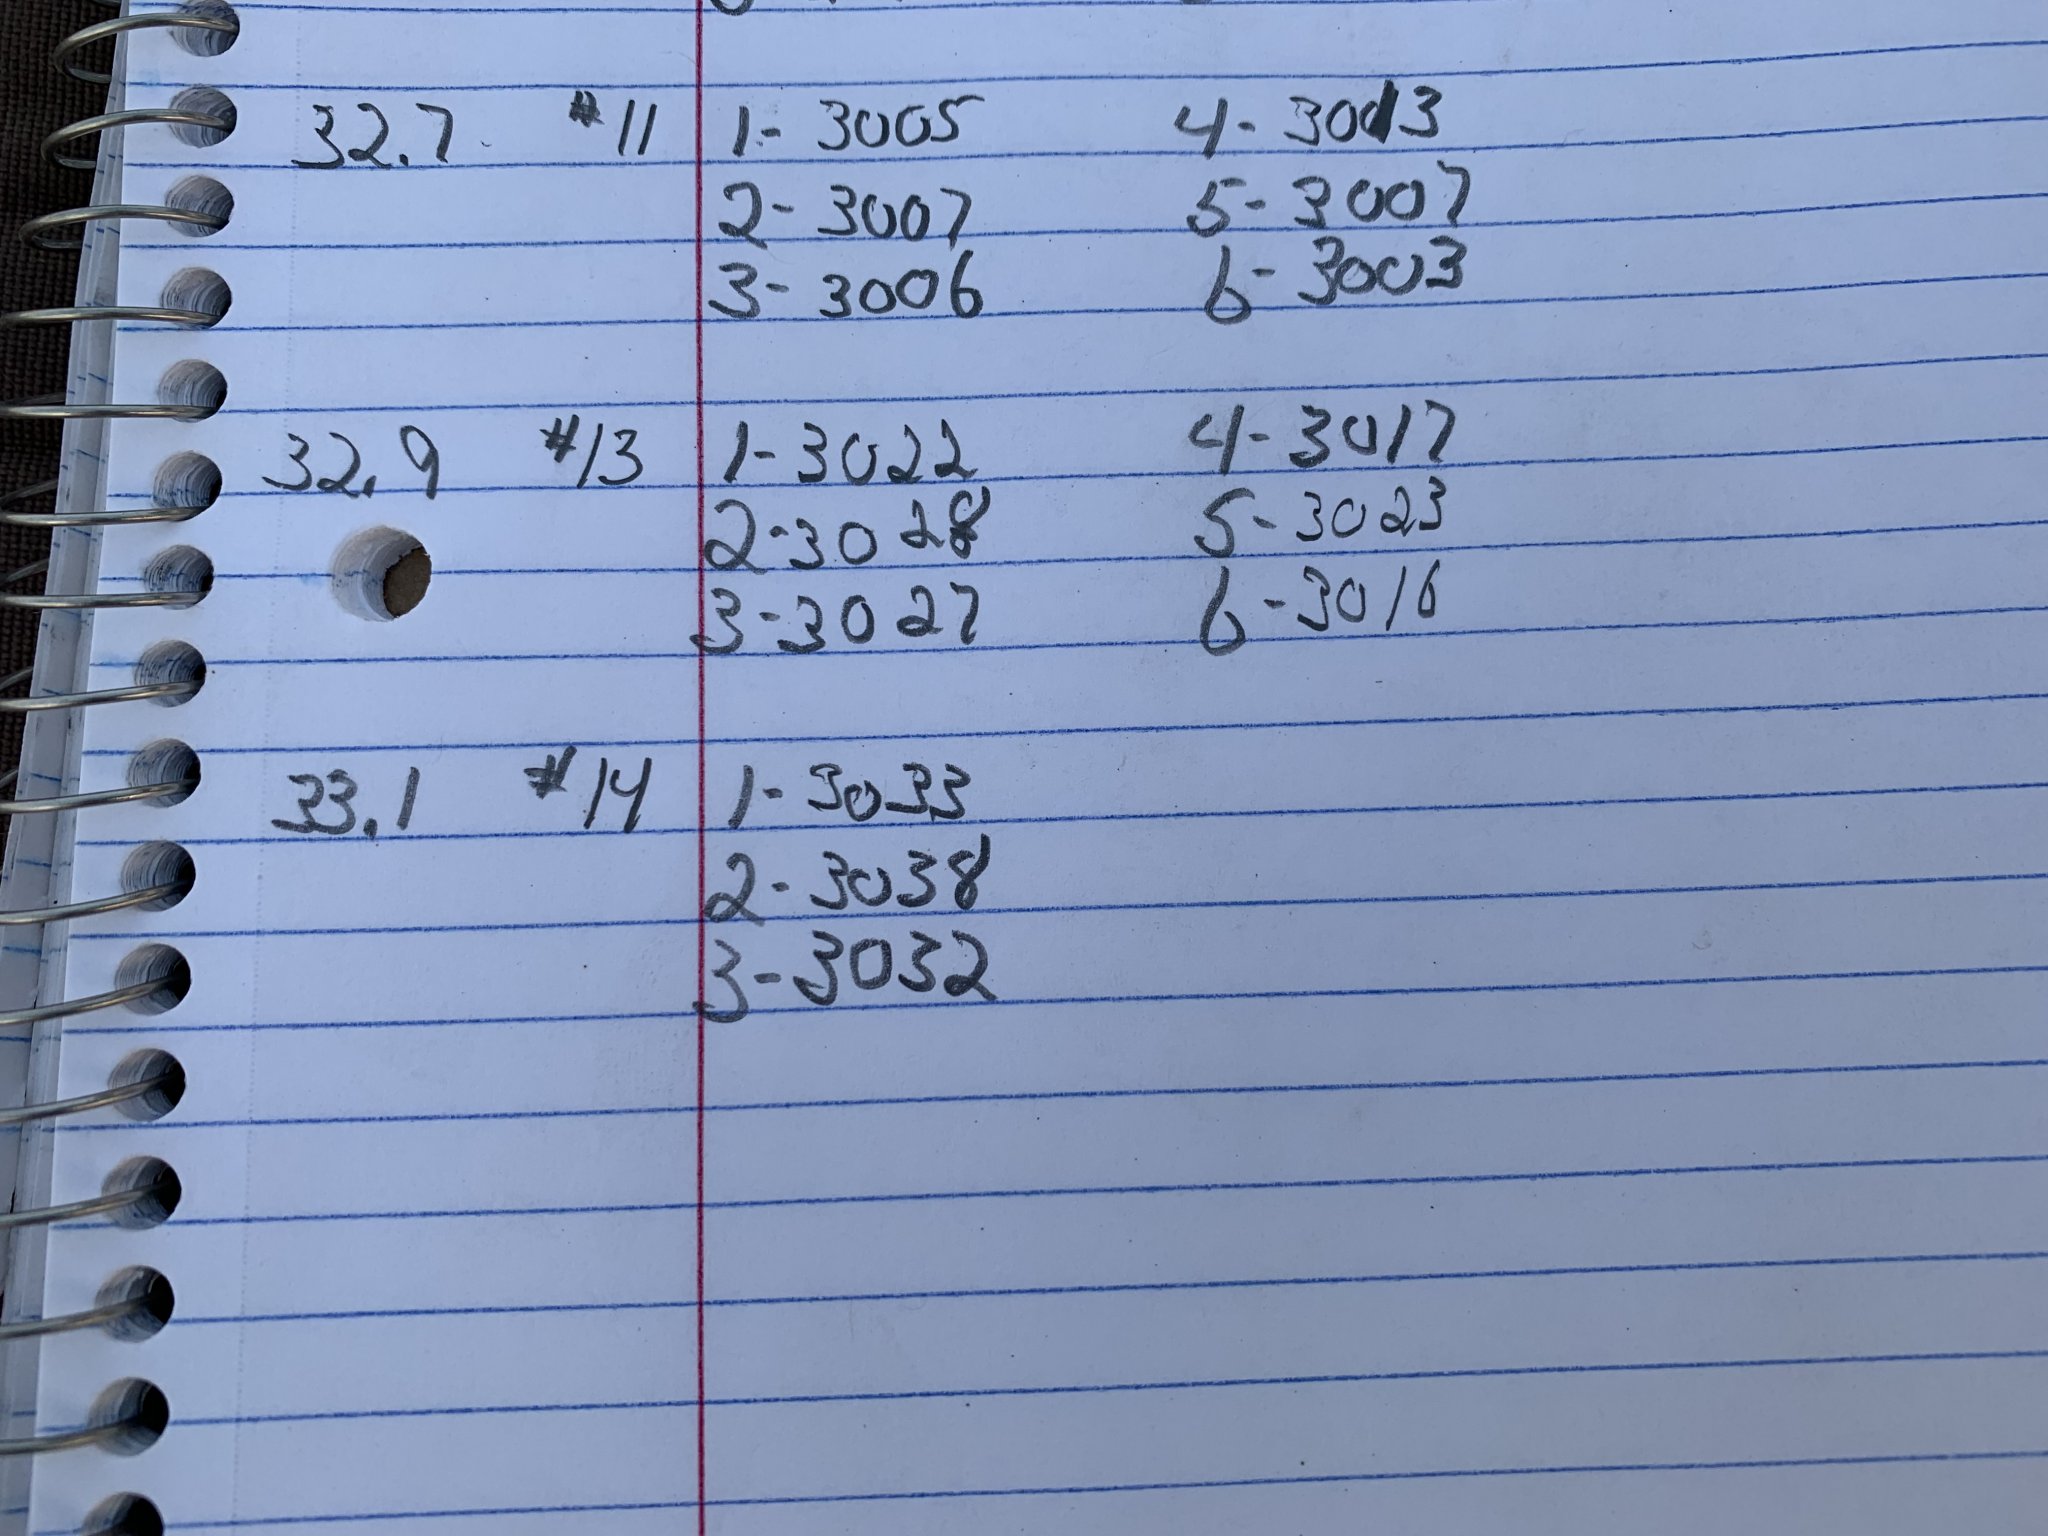 32.7 #11 1- 3005 4- 3013
2- 3007 5- 3007
3- 3006 6- 3003
32.9 #13 1- 3022 4- 3017
2- 3028 5- 3023
3- 3027 6- 3016
33.1 #14 1- 3033
2- 3038
3- 3032